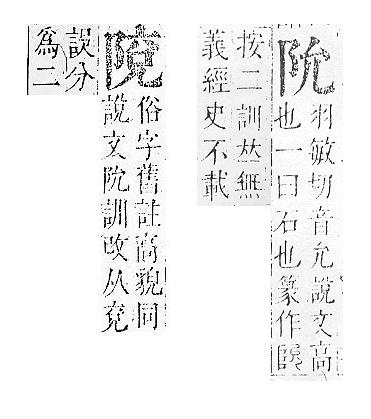 阭
羽敏切音允說文高
也一曰石也篆作
按二訓𠀤無
義經史不載
俗字舊註高貌同
說文阭訓改从兖
誤分
爲二